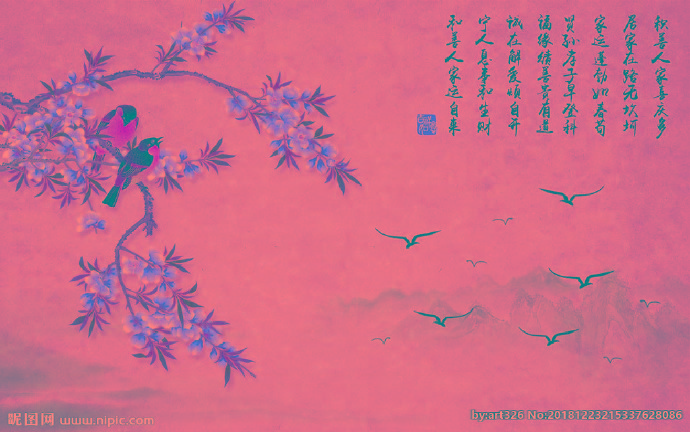 积善人家喜庆多
居家在路无坎坷
家运蓬勃如春荀
贤孙孝子早登科
福缘绩善贵有道
诚在解爱自开
宁人息事和生财
和善人家运自来
昵图网 www.nipic.com
by:art326 No:20181223215337628086